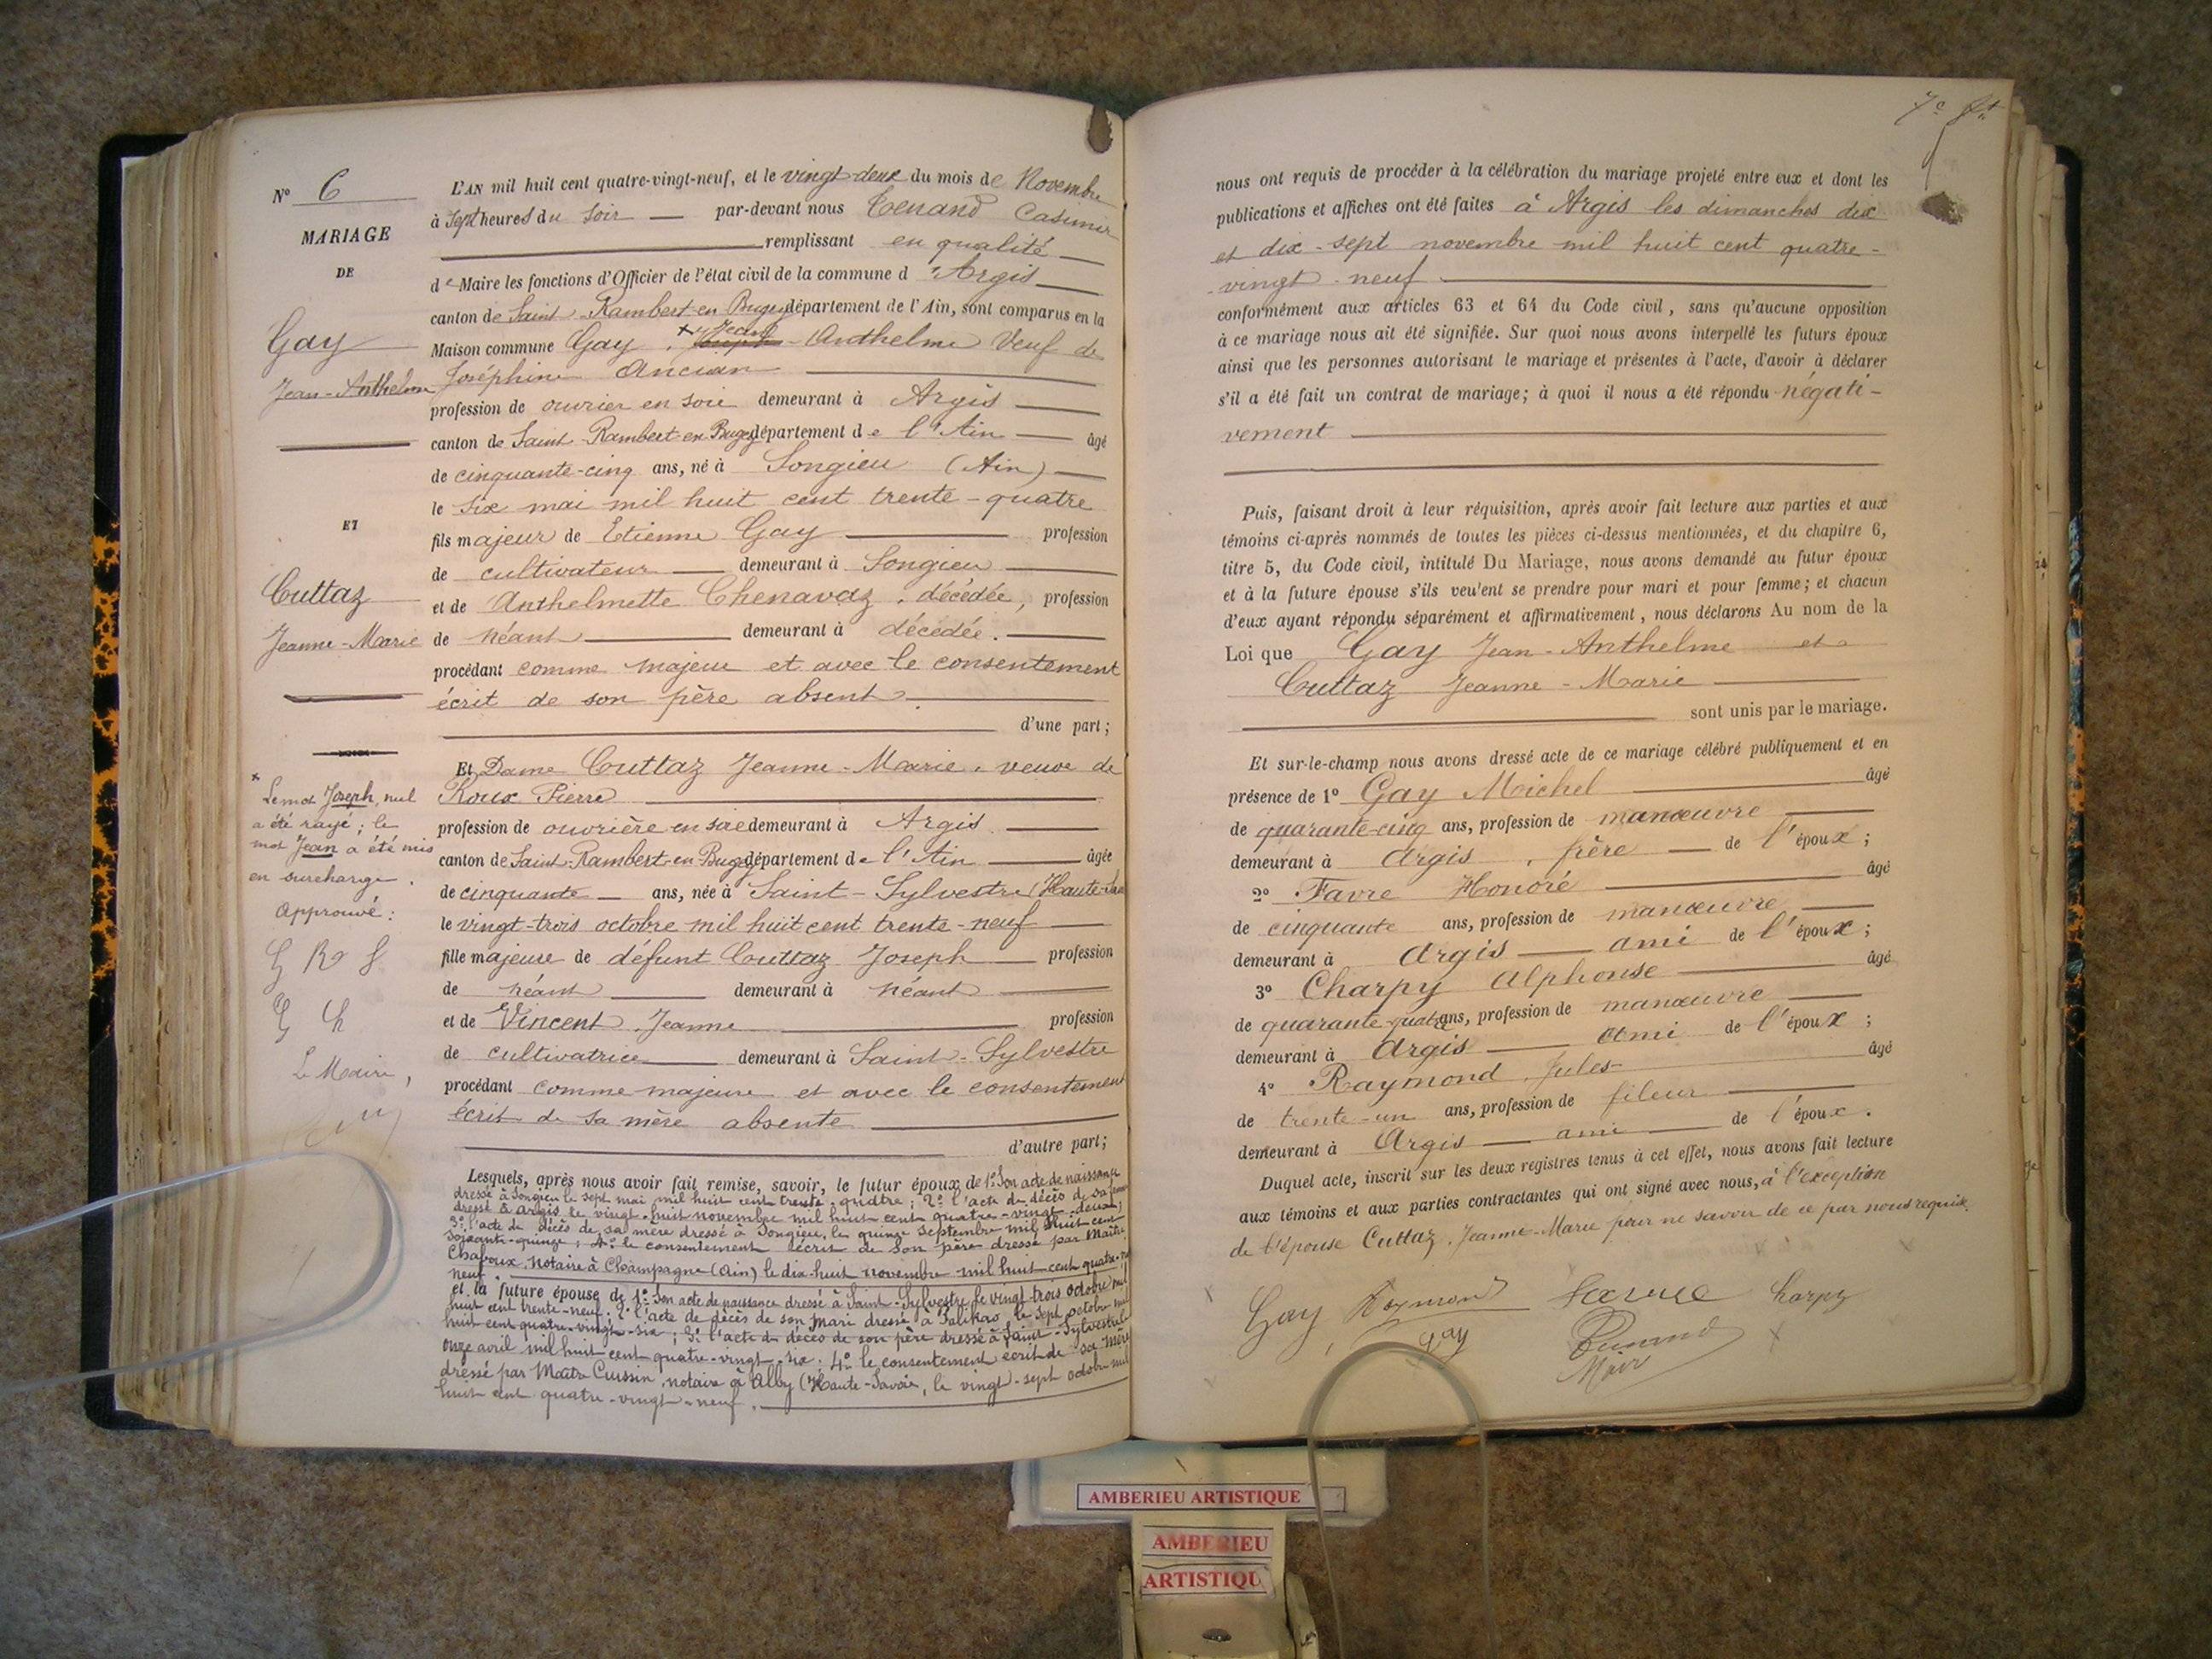 N° 6
MARIAGE
DE
Gay
Jean-Anthelme
ET
Cuttaz
Jeanne-Marie
+ Le mot Joseph, nul
a été rayé ; le
mot Jean a été mis
en surcharge.
Approuvé :
G R F
G Ch
Le Maire,
L'AN mil huit cent quatre-vingt-neuf, et le vingt-deux du mois de Novembre
à sept heures du soir — par-devant nous Tenand Casimir
remplissant en qualité
de Maire les fonctions d'Officier de l'état civil de la commune d'Argis
canton de Saint-Rambert-en-Bugey département de l'Ain, sont comparus en la
Maison commune Gay, + Jean Joseph-Anthelme Veuf de
Joséphine Ancian
profession de ouvrier en soie demeurant à Argis
canton de Saint-Rambert-en-Bugey département de l'Ain âgé
de cinquante-cinq ans, né à Songieu (Ain)
le six mai mil huit cent trente-quatre
fils majeur de Etienne Gay profession
de cultivateur demeurant à Songieu
et de Anthelmette Chenavaz, décédée, profession
de néant demeurant à décédée.
procédant comme majeur et avec le consentement
écrit de son père absent.
d'une part ;
Et Dame Cuttaz Jeanne-Marie, veuve de
Roux Pierre
profession de ouvrière en soie demeurant à Argis
canton de Saint-Rambert-en-Bugey département de l'Ain âgée
de cinquante ans, née à Saint-Sylvestre (Haute-Sav
le vingt-trois octobre mil huit cent trente-neuf
fille majeure de défunt Cuttaz Joseph profession
de néant demeurant à néant
et de Vincent Jeanne profession
de cultivatrice demeurant à Saint-Sylvestre
procédant comme majeure et avec le consentement
écrit de sa mère absente
d'autre part ;
Lesquels, après nous avoir fait remise, savoir, le futur époux de 1° Son acte de naissance
dressé à Songieu le sept mai mil huit cent trente-quatre ; 2° l'acte de décès de sa femme
dressé à Argis le vingt-huit novembre mil huit cent quatre-vingt-deux ;
3° l'acte de décès de sa mère dressé à Songieu, le quinze Septembre mil huit cent
soixante-quinze ; 4° le consentement écrit de son père dressé par Maître
Chaboux, notaire à Champagne (Ain) le dix-huit novembre mil huit cent quatre-
neuf.
et la future épouse de 1° Son acte de naissance dressé à Saint-Sylvestre le vingt-trois octobre mil
huit cent trente-neuf ; 2° l'acte de décès de son mari dressé à Palikao, le sept octobre mil
huit cent quatre-vingt-six ; 3° l'acte de décès de son père dressé à Saint-Sylvestre le
onze avril mil huit cent quatre-vingt-six ; 4° le consentement écrit de sa mère
dressé par Maître Cussin, notaire à Alby (Haute-Savoie, le vingt-sept octobre mil
huit cent quatre-vingt-neuf.
nous ont requis de procéder à la célébration du mariage projeté entre eux et dont les
publications et affiches ont été faites à Argis les dimanches dix
et dix-sept novembre mil huit cent quatre-
vingt-neuf
conformément aux articles 63 et 64 du Code civil, sans qu'aucune opposition
à ce mariage nous ait été signifiée. Sur quoi nous avons interpellé les futurs époux
ainsi que les personnes autorisant le mariage et présentes à l'acte, d'avoir à déclarer
s'il a été fait un contrat de mariage ; à quoi il nous a été répondu négati-
vement
Puis, faisant droit à leur réquisition, après avoir fait lecture aux parties et aux
témoins ci-après nommés de toutes les pièces ci-dessus mentionnées, et du chapitre 6,
titre 5, du Code civil, intitulé Du Mariage, nous avons demandé au futur époux
et à la future épouse s'ils veulent se prendre pour mari et pour femme ; et chacun
d'eux ayant répondu séparément et affirmativement, nous déclarons Au nom de la
Loi que Gay Jean-Anthelme et
Cuttaz Jeanne-Marie
sont unis par le mariage.
Et sur-le-champ nous avons dressé acte de ce mariage célébré publiquement et en
présence de 1° Gay Michel âgé
de quarante-cinq ans, profession de manœuvre
demeurant à Argis, frère de l'époux ;
2° Favre Honoré âgé
de cinquante ans, profession de manœuvre
demeurant à Argis ami de l'époux ;
3° Charpy Alphonse âgé
de quarante-quatre ans, profession de manœuvre
demeurant à Argis ami de l'époux ;
4° Raymond Jules âgé
de trente-un ans, profession de fileur
demeurant à Argis ami de l'époux.
Duquel acte, inscrit sur les deux registres tenus à cet effet, nous avons fait lecture
aux témoins et aux parties contractantes qui ont signé avec nous, à l'exception
de l'épouse Cuttaz Jeanne-Marie pour ne savoir de ce par nous requise.
Gay Raymond Favre Charpy
Gay Tenand
Maire
AMBERIEU ARTISTIQUE
AMBERIEU
ARTISTIQU